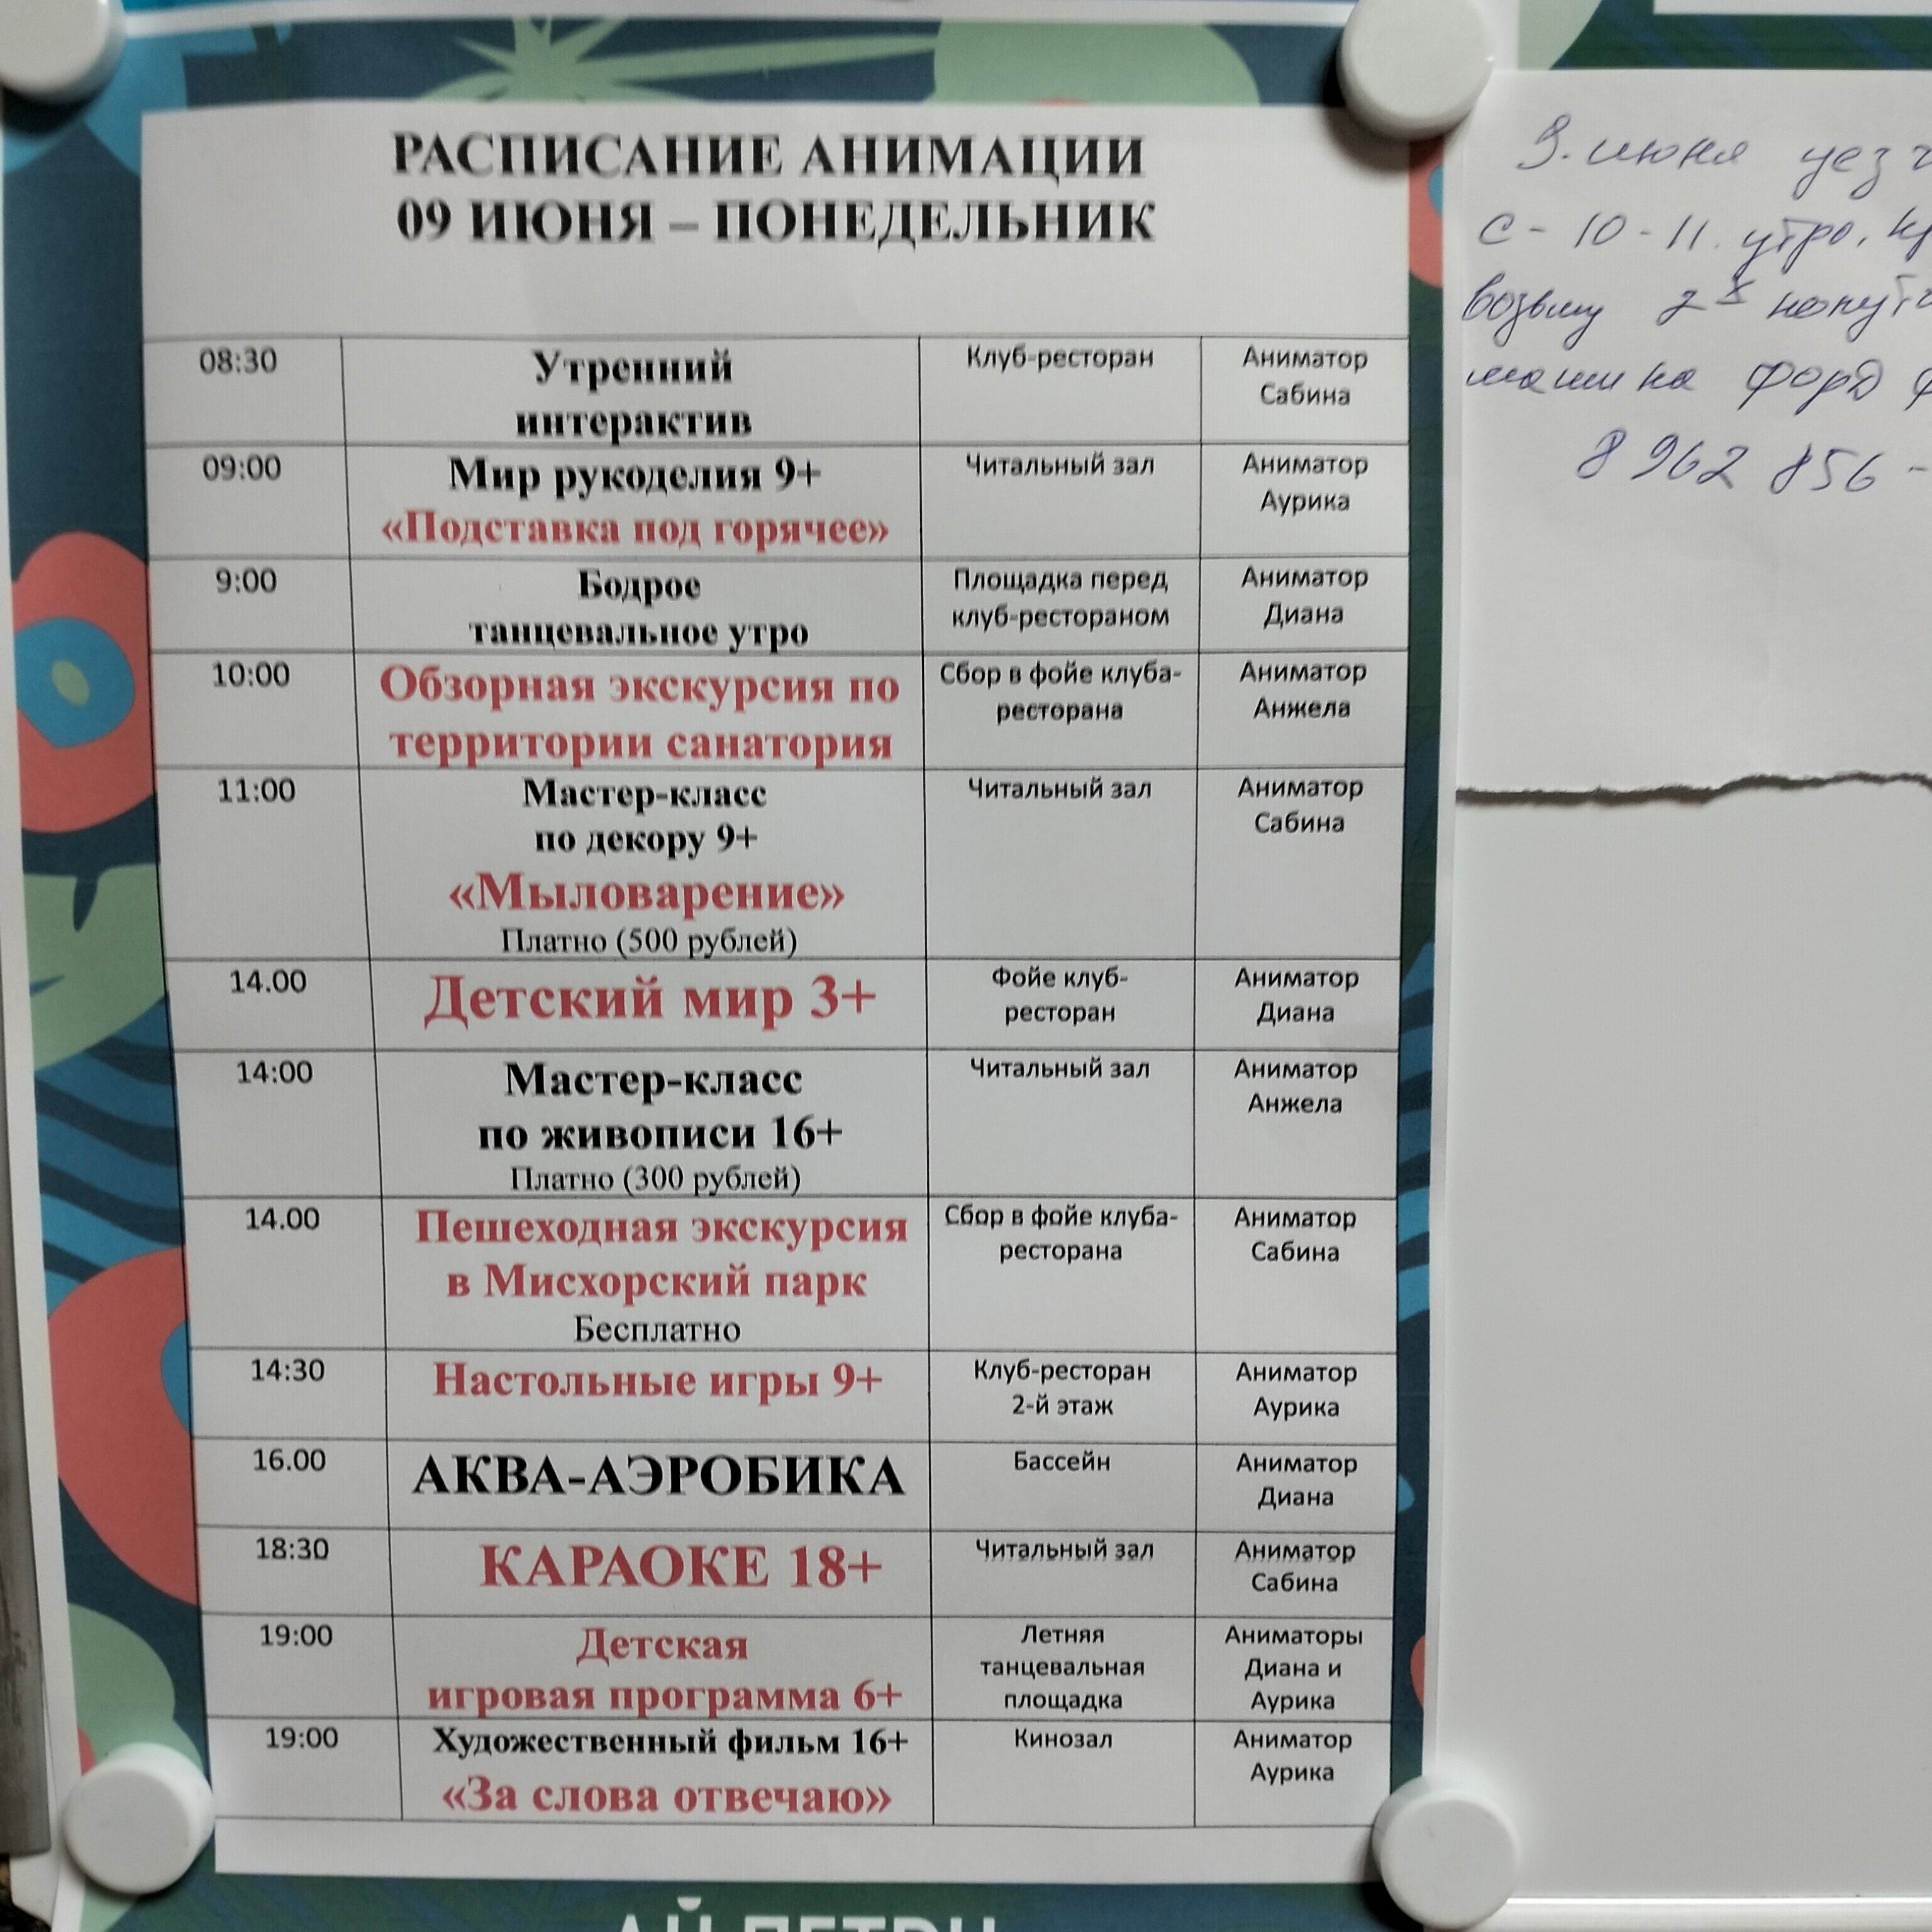 РАСПИСАНИЕ АНИМАЦИИ
09 ИЮНЯ – ПОНЕДЕЛЬНИК
08:30
Утренний
интерактив
Клуб-ресторан
Аниматор
Сабина
09:00
Мир рукоделия 9+
«Подставка под горячее»
Читальный зал
Аниматор
Аурика
9:00
Бодрое
танцевальное утро
Площадка перед
клуб-рестораном
Аниматор
Диана
10:00
Обзорная экскурсия по
территории санатория
Сбор в фойе клуба-
ресторана
Аниматор
Анжела
11:00
Мастер-класс
по декору 9+
«Мыловарение»
Платно (500 рублей)
Читальный зал
Аниматор
Сабина
14.00
Детский мир 3+
Фойе клуб-
ресторан
Аниматор
Диана
14:00
Мастер-класс
по живописи 16+
Платно (300 рублей)
Читальный зал
Аниматор
Анжела
14.00
Пешеходная экскурсия
в Мисхорский парк
Бесплатно
Сбор в фойе клуба-
ресторана
Аниматор
Сабина
14:30
Настольные игры 9+
Клуб-ресторан
2-й этаж
Аниматор
Аурика
16.00
АКВА-АЭРОБИКА
Бассейн
Аниматор
Диана
18:30
КАРАОКЕ 18+
Читальный зал
Аниматор
Сабина
19:00
Детская
игровая программа 6+
Летняя
танцевальная
площадка
Аниматоры
Диана и
Аурика
19:00
Художественный фильм 16+
«За слова отвечаю»
Кинозал
Аниматор
Аурика
9. июня
с - 10 - 11. утро,
возьму 2х
машина форд
8 962 856 -